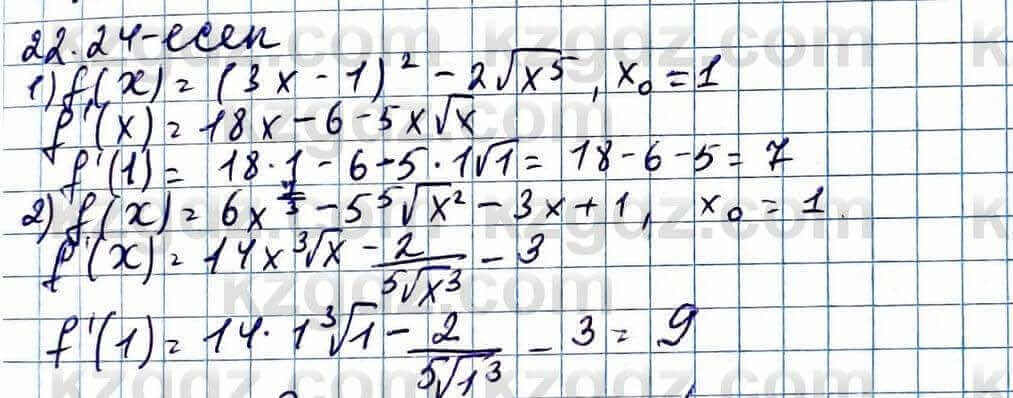 22.24-есеп
1) f(x) = (3x - 1)² - 2√x⁵, x₀ = 1
f'(x) = 18x - 6 - 5x√x
f'(1) = 18·1 - 6 - 5·1√1 = 18 - 6 - 5 = 7
2) f(x) = 6x^(7/3) - 5⁵√x² - 3x + 1, x₀ = 1.
f'(x) = 14x³√x - 2/⁵√x³ - 3
f'(1) = 14·1³√1 - 2/⁵√1³ - 3 = 9